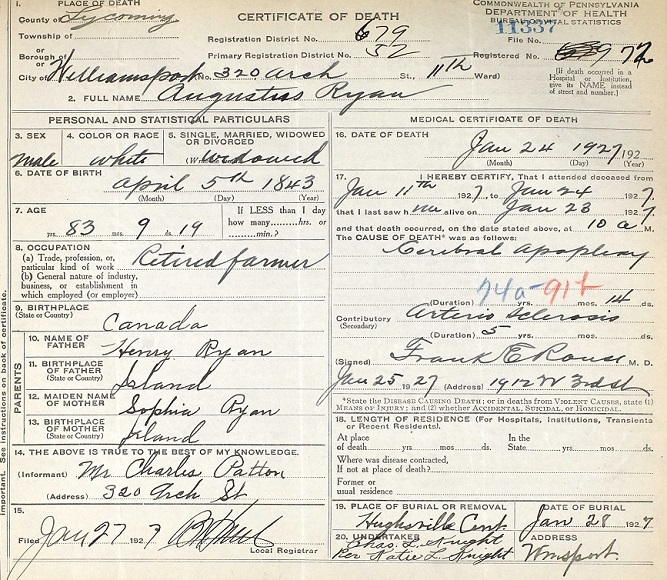 1. PLACE OF DEATH
County of Lycoming
Township of
or
Borough of
or
City of Williamsport No. 320 Arch St., 11th Ward)
CERTIFICATE OF DEATH
Registration District No. 679
Primary Registration District No. 52
COMMONWEALTH OF PENNSYLVANIA
DEPARTMENT OF HEALTH
BUREAU OF VITAL STATISTICS
11337
File No.
Registered No. 72
[If death occurred in a Hospital or Institution, give its NAME instead of street and number.]
2. FULL NAME Augustus Ryan
PERSONAL AND STATISTICAL PARTICULARS
3. SEX
male
4. COLOR OR RACE
white
5. SINGLE, MARRIED, WIDOWED
OR DIVORCED
widowed
6. DATE OF BIRTH
April 5th 1843
(Month) (Day) (Year)
7. AGE
83 yrs. 9 mos. 19 ds.
If LESS than 1 day
how many hrs. or
min.?
8. OCCUPATION
(a) Trade, profession, or,
particular kind of work
Retired farmer
(b) General nature of industry,
business, or establishment in
which employed (or employer)
9. BIRTHPLACE
(State or Country)
Canada
PARENTS
10. NAME OF
FATHER
Henry Ryan
11. BIRTHPLACE OF
FATHER
(State or Country)
Island
12. MAIDEN NAME
OF MOTHER
Sophia Ryan
13. BIRTHPLACE
OF MOTHER
(State or Country)
Island
14. THE ABOVE IS TRUE TO THE BEST OF MY KNOWLEDGE.
(Informant) Mr Charles Patton
(Address) 320 Arch St
15.
Filed Jan 27 1927
Local Registrar
MEDICAL CERTIFICATE OF DEATH
16. DATE OF DEATH
Jan 24 1927, 192
(Month) (Day) (Year)
17. I HEREBY CERTIFY, That I attended deceased from
Jan 11th 1927, to Jan 24 1927,
that I last saw him alive on Jan 23 1927,
and that death occurred, on the date stated above, at 10 a M.
The CAUSE OF DEATH* was as follows:
Cerebral apoplexy
74a-91t
(Duration) yrs. mos. 14 ds.
Contributory Arterio Sclerosis
(Secondary)
(Duration) 5 yrs. mos. ds.
(Signed) Frank E Rouse M. D.
Jan 25 1927 (Address) 1912 W 3rd St
*State the DISEASE CAUSING DEATH; or in deaths from VIOLENT CAUSES, state (1)
MEANS OF INJURY; and (2) whether ACCIDENTAL, SUICIDAL, or HOMICIDAL.
18. LENGTH OF RESIDENCE (For Hospitals, Institutions, Transients
or Recent Residents).
At place
of death yrs. mos. ds.
In the
State yrs. mos. ds.
Where was disease contracted,
If not at place of death?
Former or
usual residence
19. PLACE OF BURIAL OR REMOVAL
Hughsville Cem.
DATE OF BURIAL
Jan 28 1927
20. UNDERTAKER
Chas. L. Knight
Per Katie L. Knight
ADDRESS
Wmsport.
important. See instructions on back of certificate.